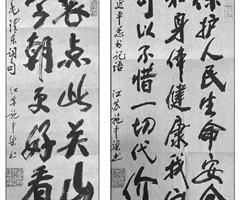 保护人民生命安全
身体健康我们
可以不惜一切代价
近平总书记语 江苏
装点此关山
今朝更好看
毛泽东词句 江苏